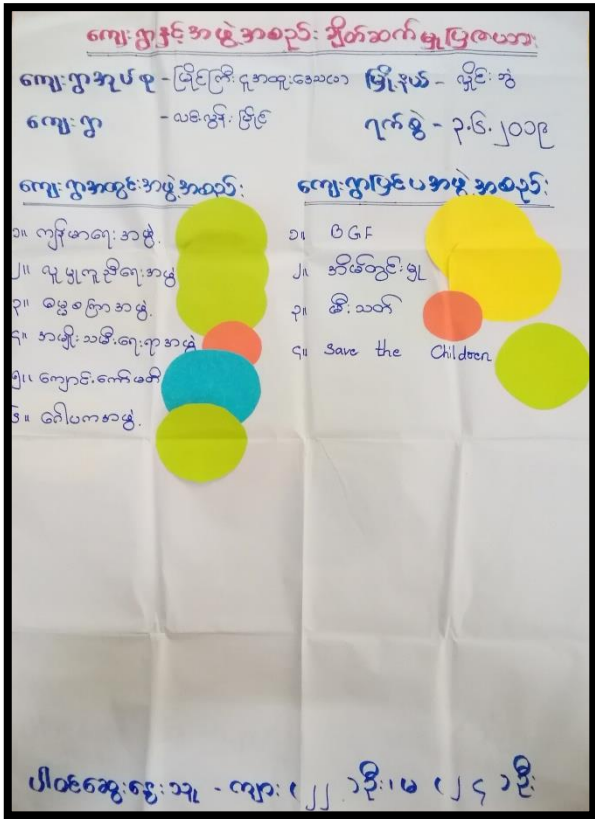 ကျေးရွာနှင့်အဖွဲ့အစည်း ချိတ်ဆက်မှုပြဇယား
ကျေးရွာအုပ်စု - မြိုင်ကြီးငူအထူးဒေသ မြို့နယ် - လှိုင်းဘွဲ
ကျေးရွာ - မြိုင် ရက်စွဲ - ၃.၆.၂၀၁၉
ကျေးရွာအတွင်းအဖွဲ့အစည်း
၁။ ကျန်မာရေးအဖွဲ့
၂။ လူမှုကူညီရေးအဖွဲ့
၃။ ဓမ္မစကြာအဖွဲ့
၄။ အမျိုးသမီးရေးရာအဖွဲ့
၅။ ကျောင်းကော်မတီ
၆။ ဂေါပကအဖွဲ့
ကျေးရွာပြင်ပအဖွဲ့အစည်း
၁။ BGF
၂။ အိမ်တွင်းမှု
၃။ မီးသတ်
၄။ Save the Children
ပါဝင်ဆွေးနွေးသူ - ကျား (၂၂) ဦး၊ မ (၂၄) ဦး